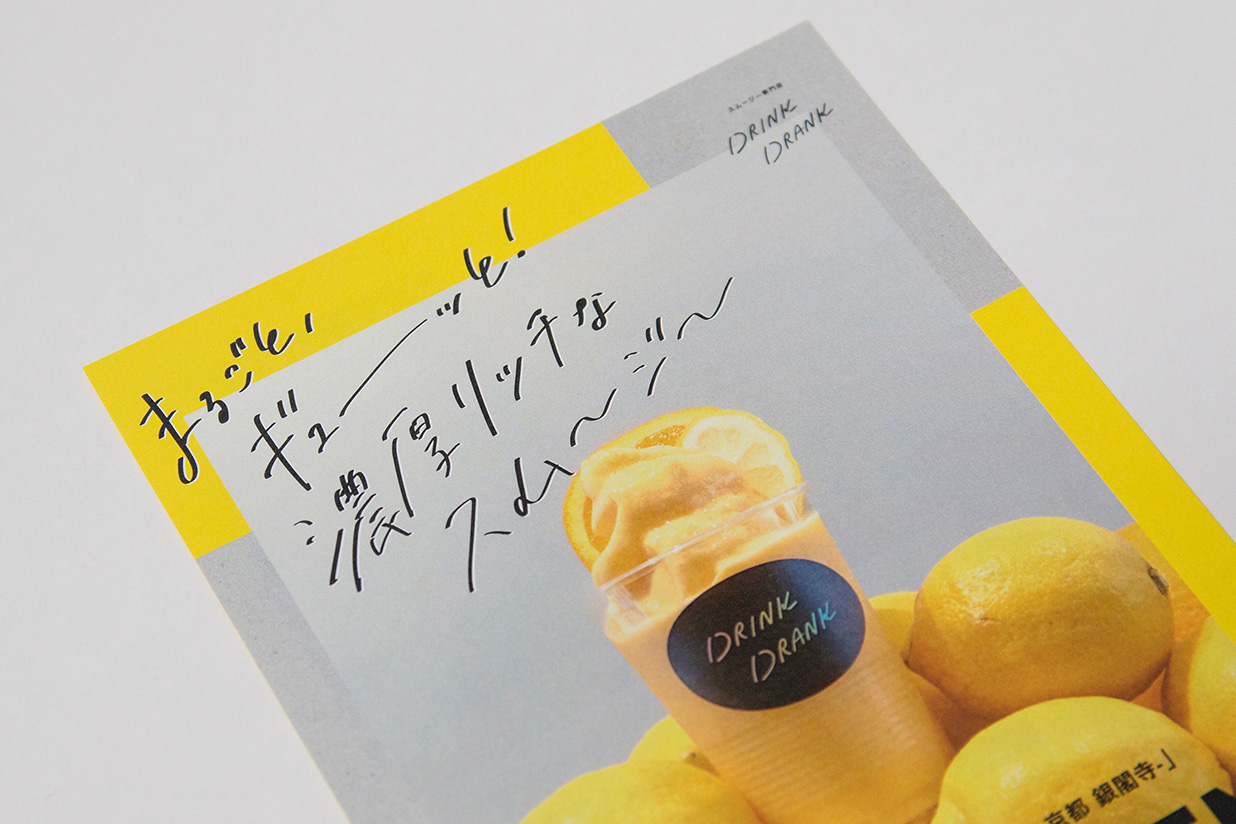 スムージー専門店
DRINK
DRANK
まるごと、
ギューーッと!
濃厚リッチな
スム〜ジ〜
DRINK
DRANK
京都 銀閣寺-」